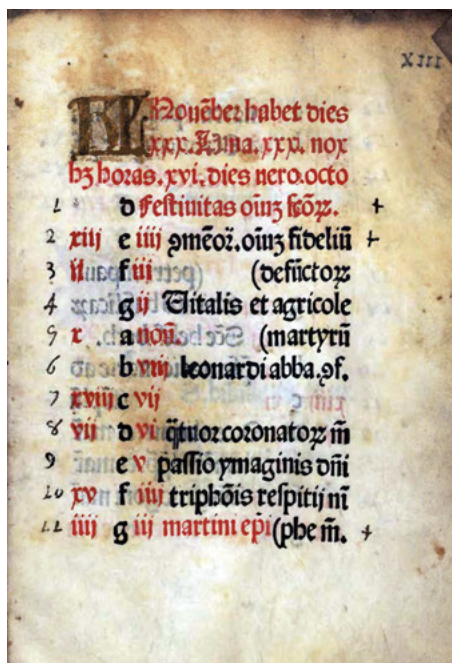 XIII
KL Nouēber habet dies
xxx. Luna. xxx. nox
hꝫ horas. xvi. dies uero. octo
1 d Festiuitas oīuꝫ scōꝝ. +
2 xiij e iiij ꝯmēoꝛ̄. oīuꝫ fideliū +
3 ij f iij (defūctoꝝ
4 g ij Uitalis et agricole
5 x a noū. (martyrū
6 b viij leonardi abba. ꝯf.
7 xviij c vij
8 vij d vi q̄tuor coronatoꝝ m̄
9 e v passio ymaginis dn̄i
10 xv f iiij triphōis respitij nī
11 iiij g iij martini ep̄i (phe m̄. +